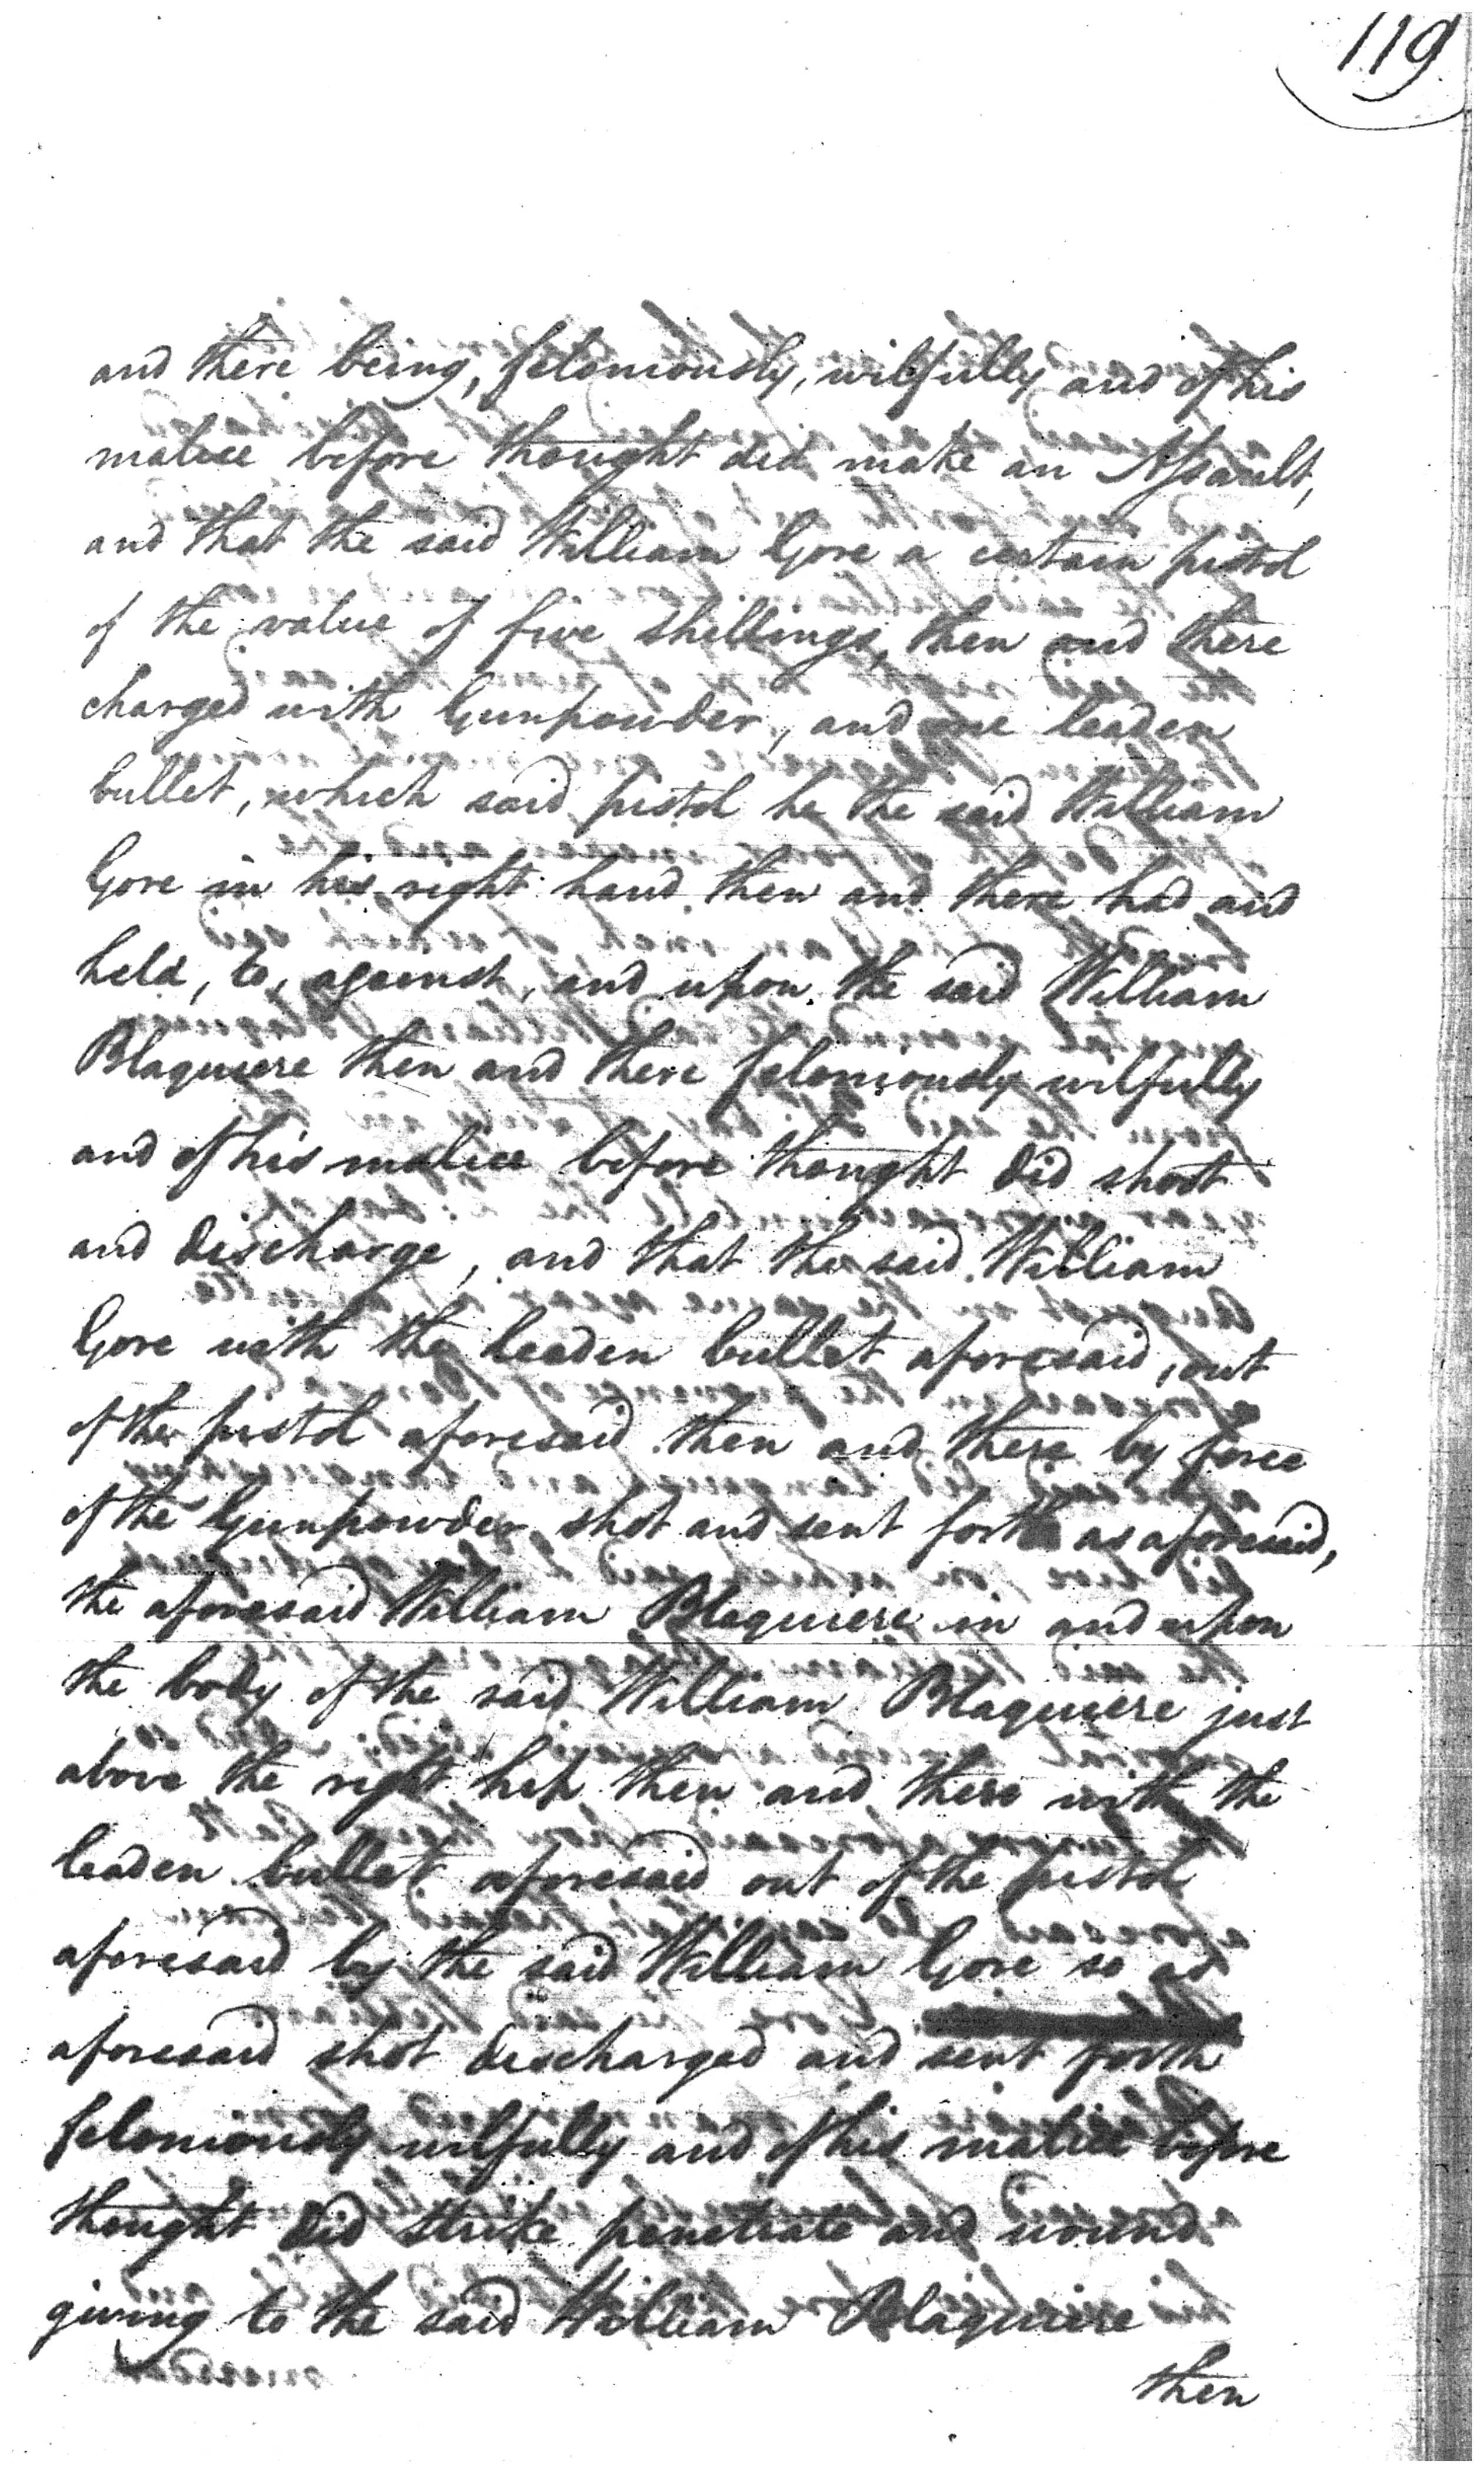 119
and there being, feloniously, wilfully and of his
malice before thought did make an Assault,
and that the said William Gore a certain pistol
of the value of five shillings, then and there
charged with Gunpowder, and one leaden
bullet, which said pistol he the said William
Gore in his right hand then and there had and
held, to, against, and upon the said William
Blaquiere then and there feloniously wilfully
and of his malice before thought did shoot
and discharge, and that the said William
Gore with the leaden bullet aforesaid, out
of the pistol aforesaid then and there by force
of the Gunpowder shot and sent forth as aforesaid,
the aforesaid William Blaquiere in and upon
the body of the said William Blaquiere just
above the right hip then and there with the
leaden bullet aforesaid out of the pistol
aforesaid by the said William Gore so as
aforesaid shot discharged and sent forth
feloniously wilfully and of his malice before
thought did strike penetrate and wound
giving to the said William Blaquiere
then